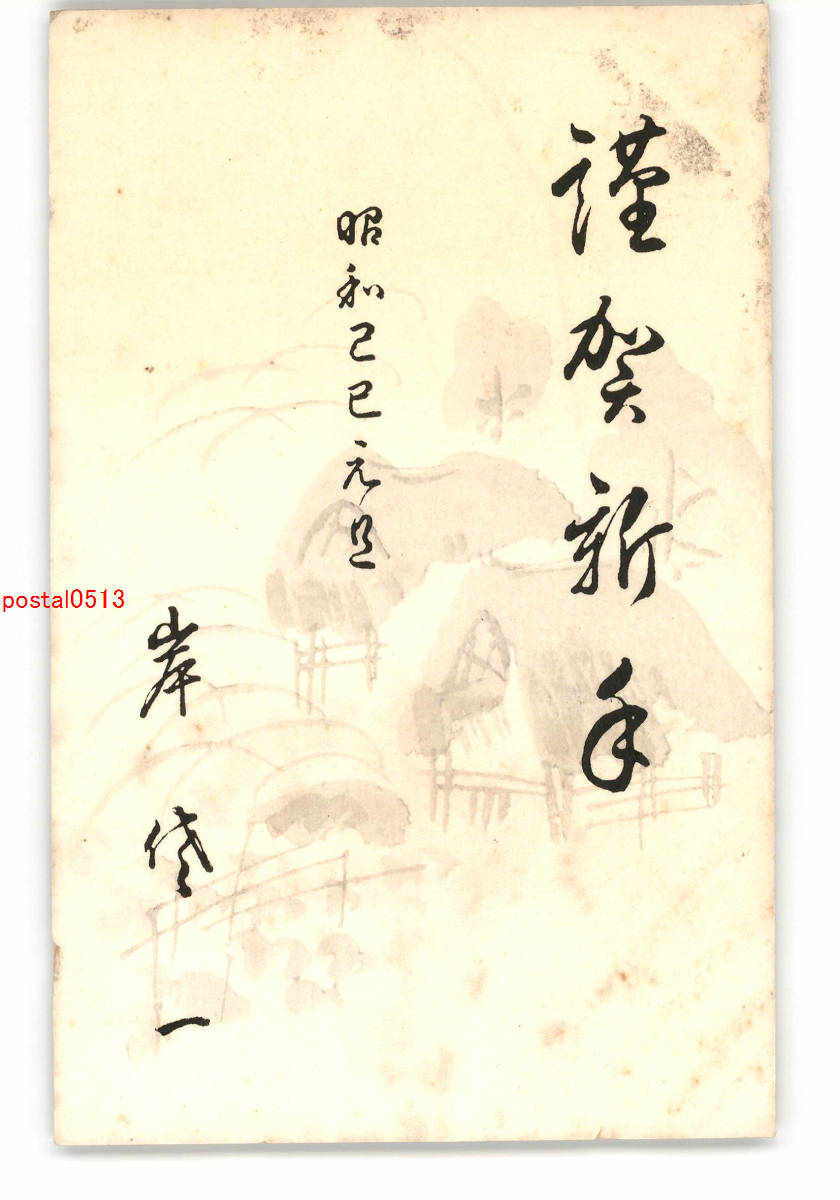 謹賀新年
昭和己巳元旦
岸 一
postal0513